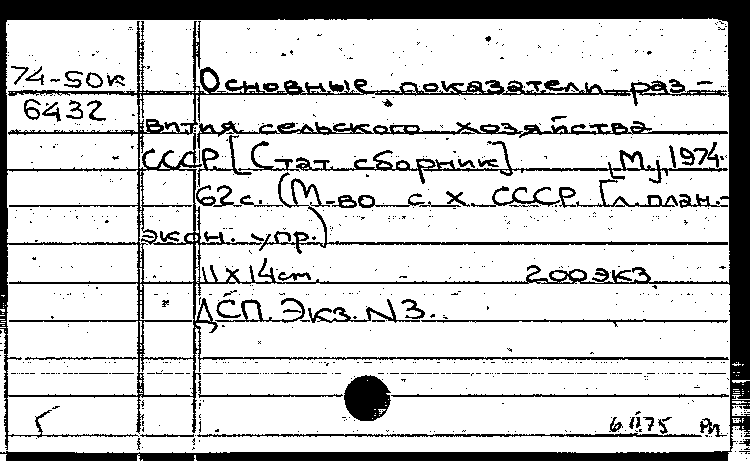 74-50к
6432
Основные показатели раз-
вития сельского хозяйства
СССР. [Стат. сборник]. [М.], 1974.
62с. (М-во с. х. СССР. Гл. план.-
экон. упр.)
11 x 14 cm. - 200 экз.
ДСП. Экз. N3.
Г
6 II 75